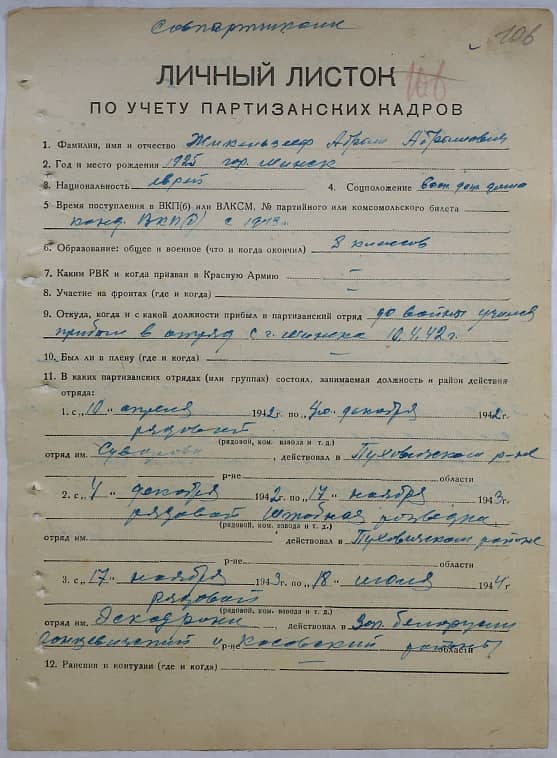 106
ЛИЧНЫЙ ЛИСТОК 106
ПО УЧЕТУ ПАРТИЗАНСКИХ КАДРОВ
1. Фамилия, имя и отчество Абрам Абрамович
2. Год и место рождения 1925 гор. Минск
3. Национальность еврей 4. Соцположение
5 Время поступления в ВКП(б) или ВЛКСМ, № партийного или комсомольского билета
канд. ВКП(б) с 1943г.
6. Образование: общее и военное (что и когда окончил) 8 классов
7. Каким РВК и когда призван в Красную Армию —
8. Участие на фронтах (где и когда) —
9. Откуда, когда и с какой должности прибыл в партизанский отряд до войны учился
прибыл в отряд с г. Минска 10.4.42г.
10. Был ли в плену (где и когда) —
11. В каких партизанских отрядах (или группах) состоял, занимаемая должность и район действия
отряда:
1. с „10“ апреля 1942г по „4“ декабря 1942г.
рядовой
(рядовой, ком. взвода и т. д.)
отряд им. Суворова, действовал в Пуховичском р-не
р-не области
2. с „4“ декабря 1942г по „17“ ноября 1943г.
рядовой штабная разведка
(рядовой, ком. взвода и т. д.)
отряд им. действовал в Пуховичском районе
р-не области
3. с „17“ ноября 1943г. по „18“ июля 1944г
рядовой
(рядовой, ком. взвода и т. д.)
отряд им. действовал в Зап. Белоруссии
Ганцевичский и Косовский р-не районы области
12. Ранения и контузии (где и когда) —